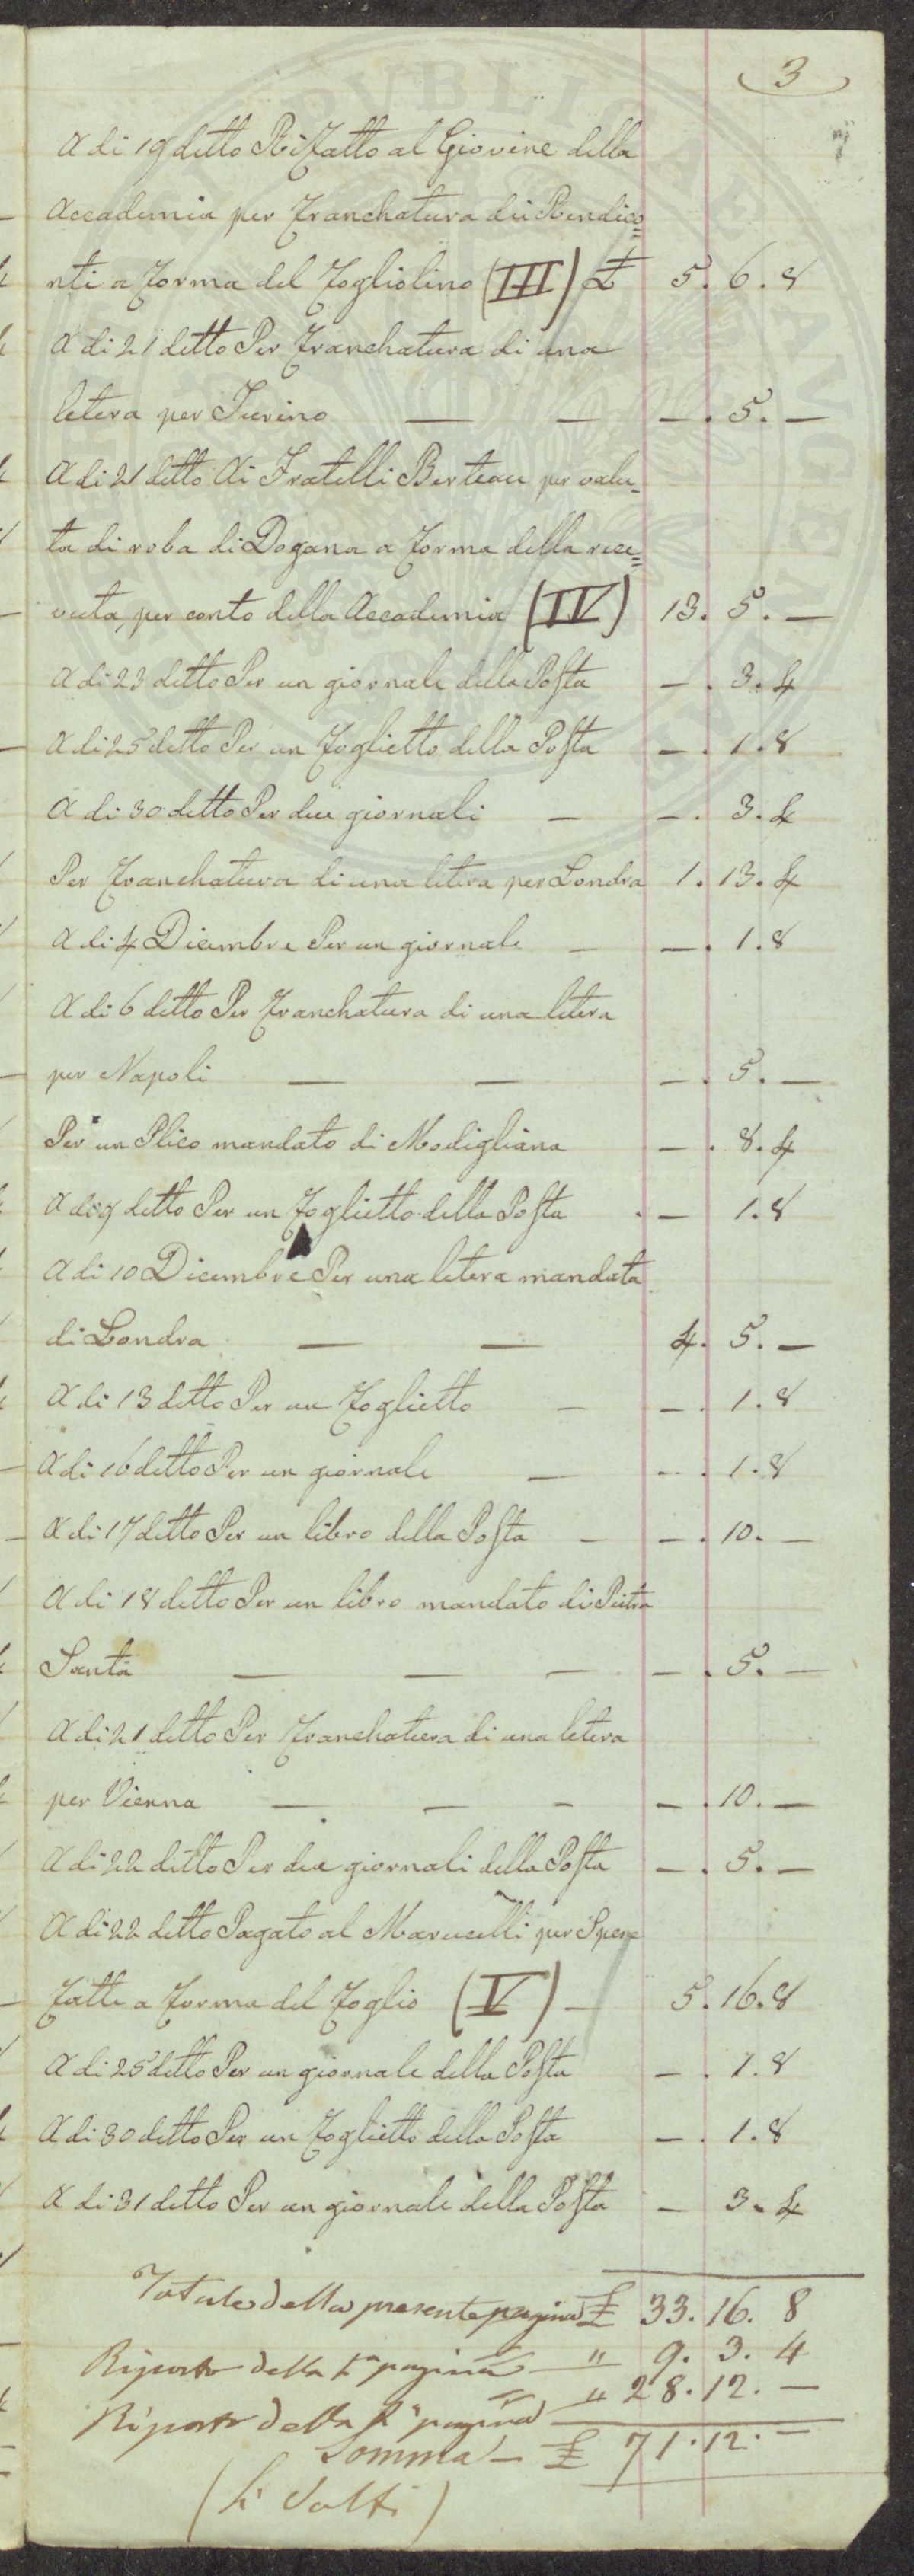 3
A di 19 ditto Rifatto al Giovine della
Accademia per franchatura dei Rendico=
nti a forma del fogliolino (III) £ 5. 6. 8
A di 21 ditto Per franchatura di una
letera per Turino — — —. 5. —
A di 21 ditto Ai Fratelli Berteau per valu=
ta di roba di Dogana a forma della rice=
vuta, per conto della Accademia (IV) 13. 5. —
A di 23 ditto Per un giornale della Posta —. 3. 4
A di 25 ditto Per un foglietto della Posta —. 1. 8
A di 30 ditto Per due giornali — —. 3. 4
Per franchatura di una letera per Londra 1. 13. 4
A di 4 Dicembre Per un giornale — —. 1. 8
A di 6 ditto Per franchatura di una letera
per Napoli — — —. 5. —
Per un Plico mandato di Modigliana —. 8. 4
A di 9 ditto Per un foglietto della Posta . — 1. 8
A di 10 Dicembre Per una letera mandata
di Londra — — 4. 5. —
A di 13 ditto Per un foglietto — —. 1. 8
A di 16 ditto Per un giornale — —. 1. 8
A di 17 ditto Per un libro della Posta — —. 10. —
A di 18 ditto Per un libro mandato di Pietra
Santa — — — —. 5. —
A di 21 ditto Per franchatura di una letera
per Vienna — — — —. 10. —
A di 22 ditto Per due giornali della Posta —. 5. —
A di 22 ditto Pagato al Marucelli per Spese
fatte a forma del foglio (V) — 5. 16. 8
A di 25 ditto Per un giornale della Posta —. 1. 8
A di 30 ditto Per un foglietto della Posta —. 1. 8
A di 31 ditto Per un giornale della Posta — 3. 4
Totale della presente pagina £ 33. 16. 8
Riporto della 1ª pagina — " 9. 3. 4
Riporto della 2ª pagina — " 28. 12. —
Somma — £ 71. 12. —